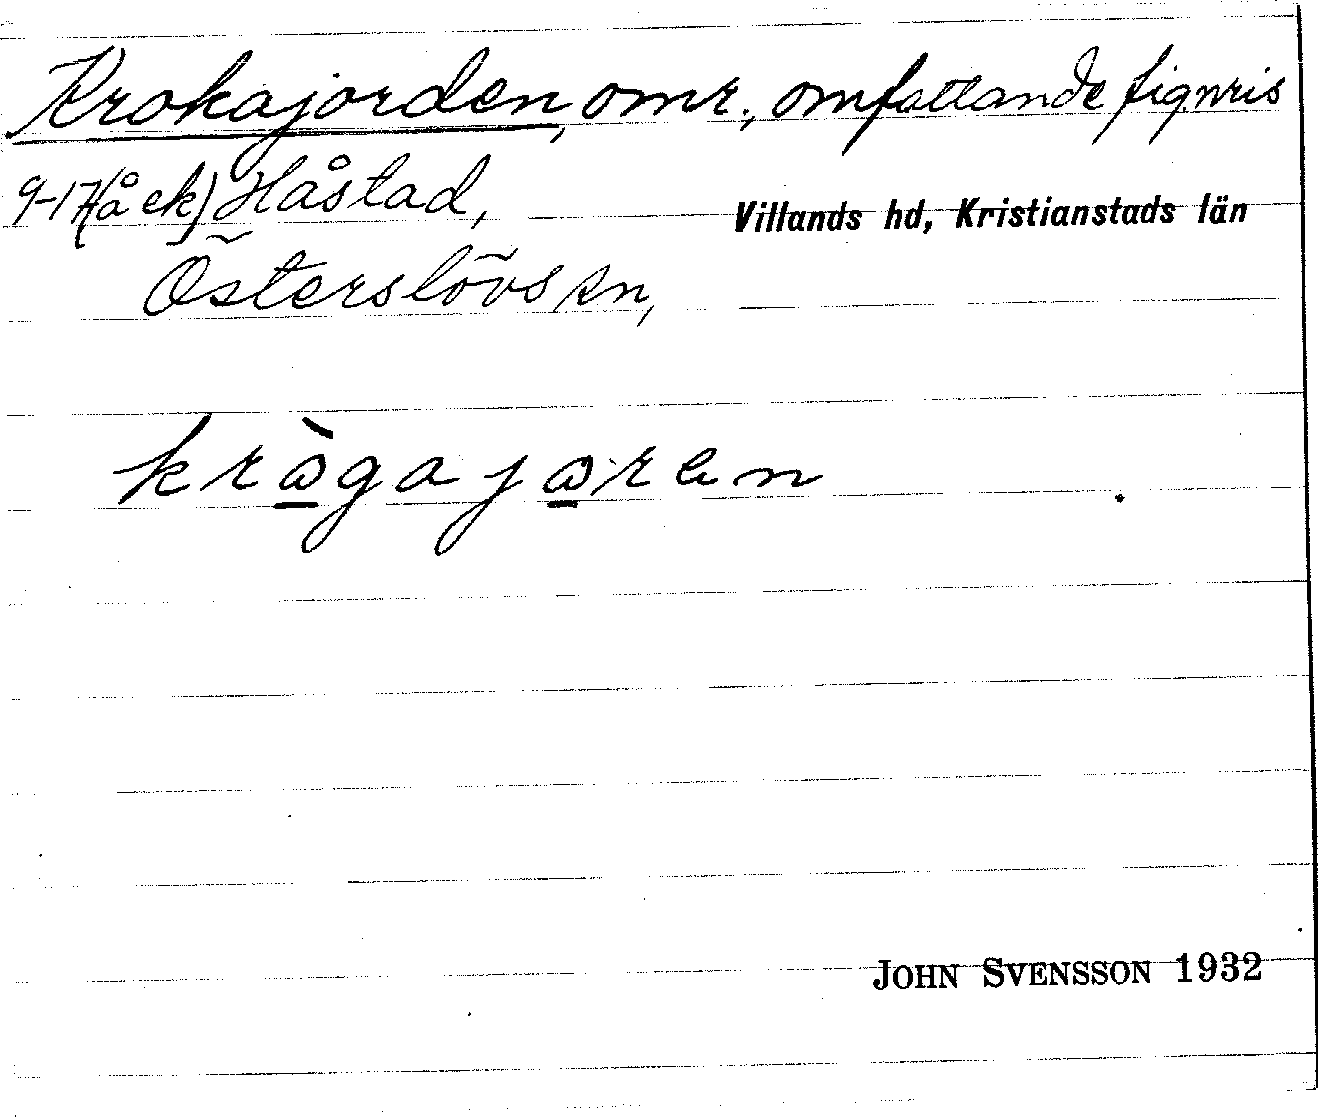 Krokajorden, omr., omfattande fignris
9-17(å ek) Håstad, Villands hd, Kristianstads län
Österslövs sn,
kràgajaren
JOHN SVENSSON 1932